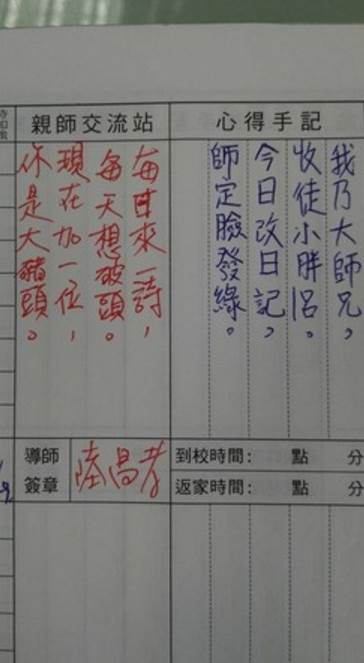 心得手記
我乃大師兄，
收徒小胖侶。
今日改日記，
師定臉發綠。
親師交流站
每日來一詩，
每天想破頭。
現在加一位，
你是大豬頭。
導師
簽章
陸昌孝
到校時間： 點 分
返家時間： 點 分